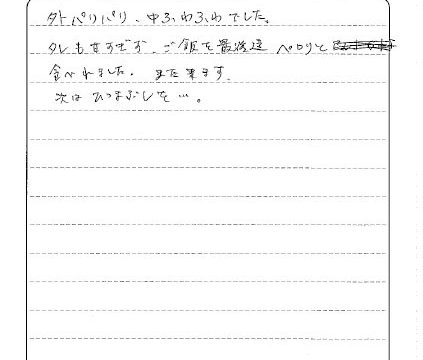 外パリパリ、中ふわふわでした。
タレも甘すぎず、ご飯を最後迄 ペロリと
食べれました。また来ます。
次はひつまぶしを…。